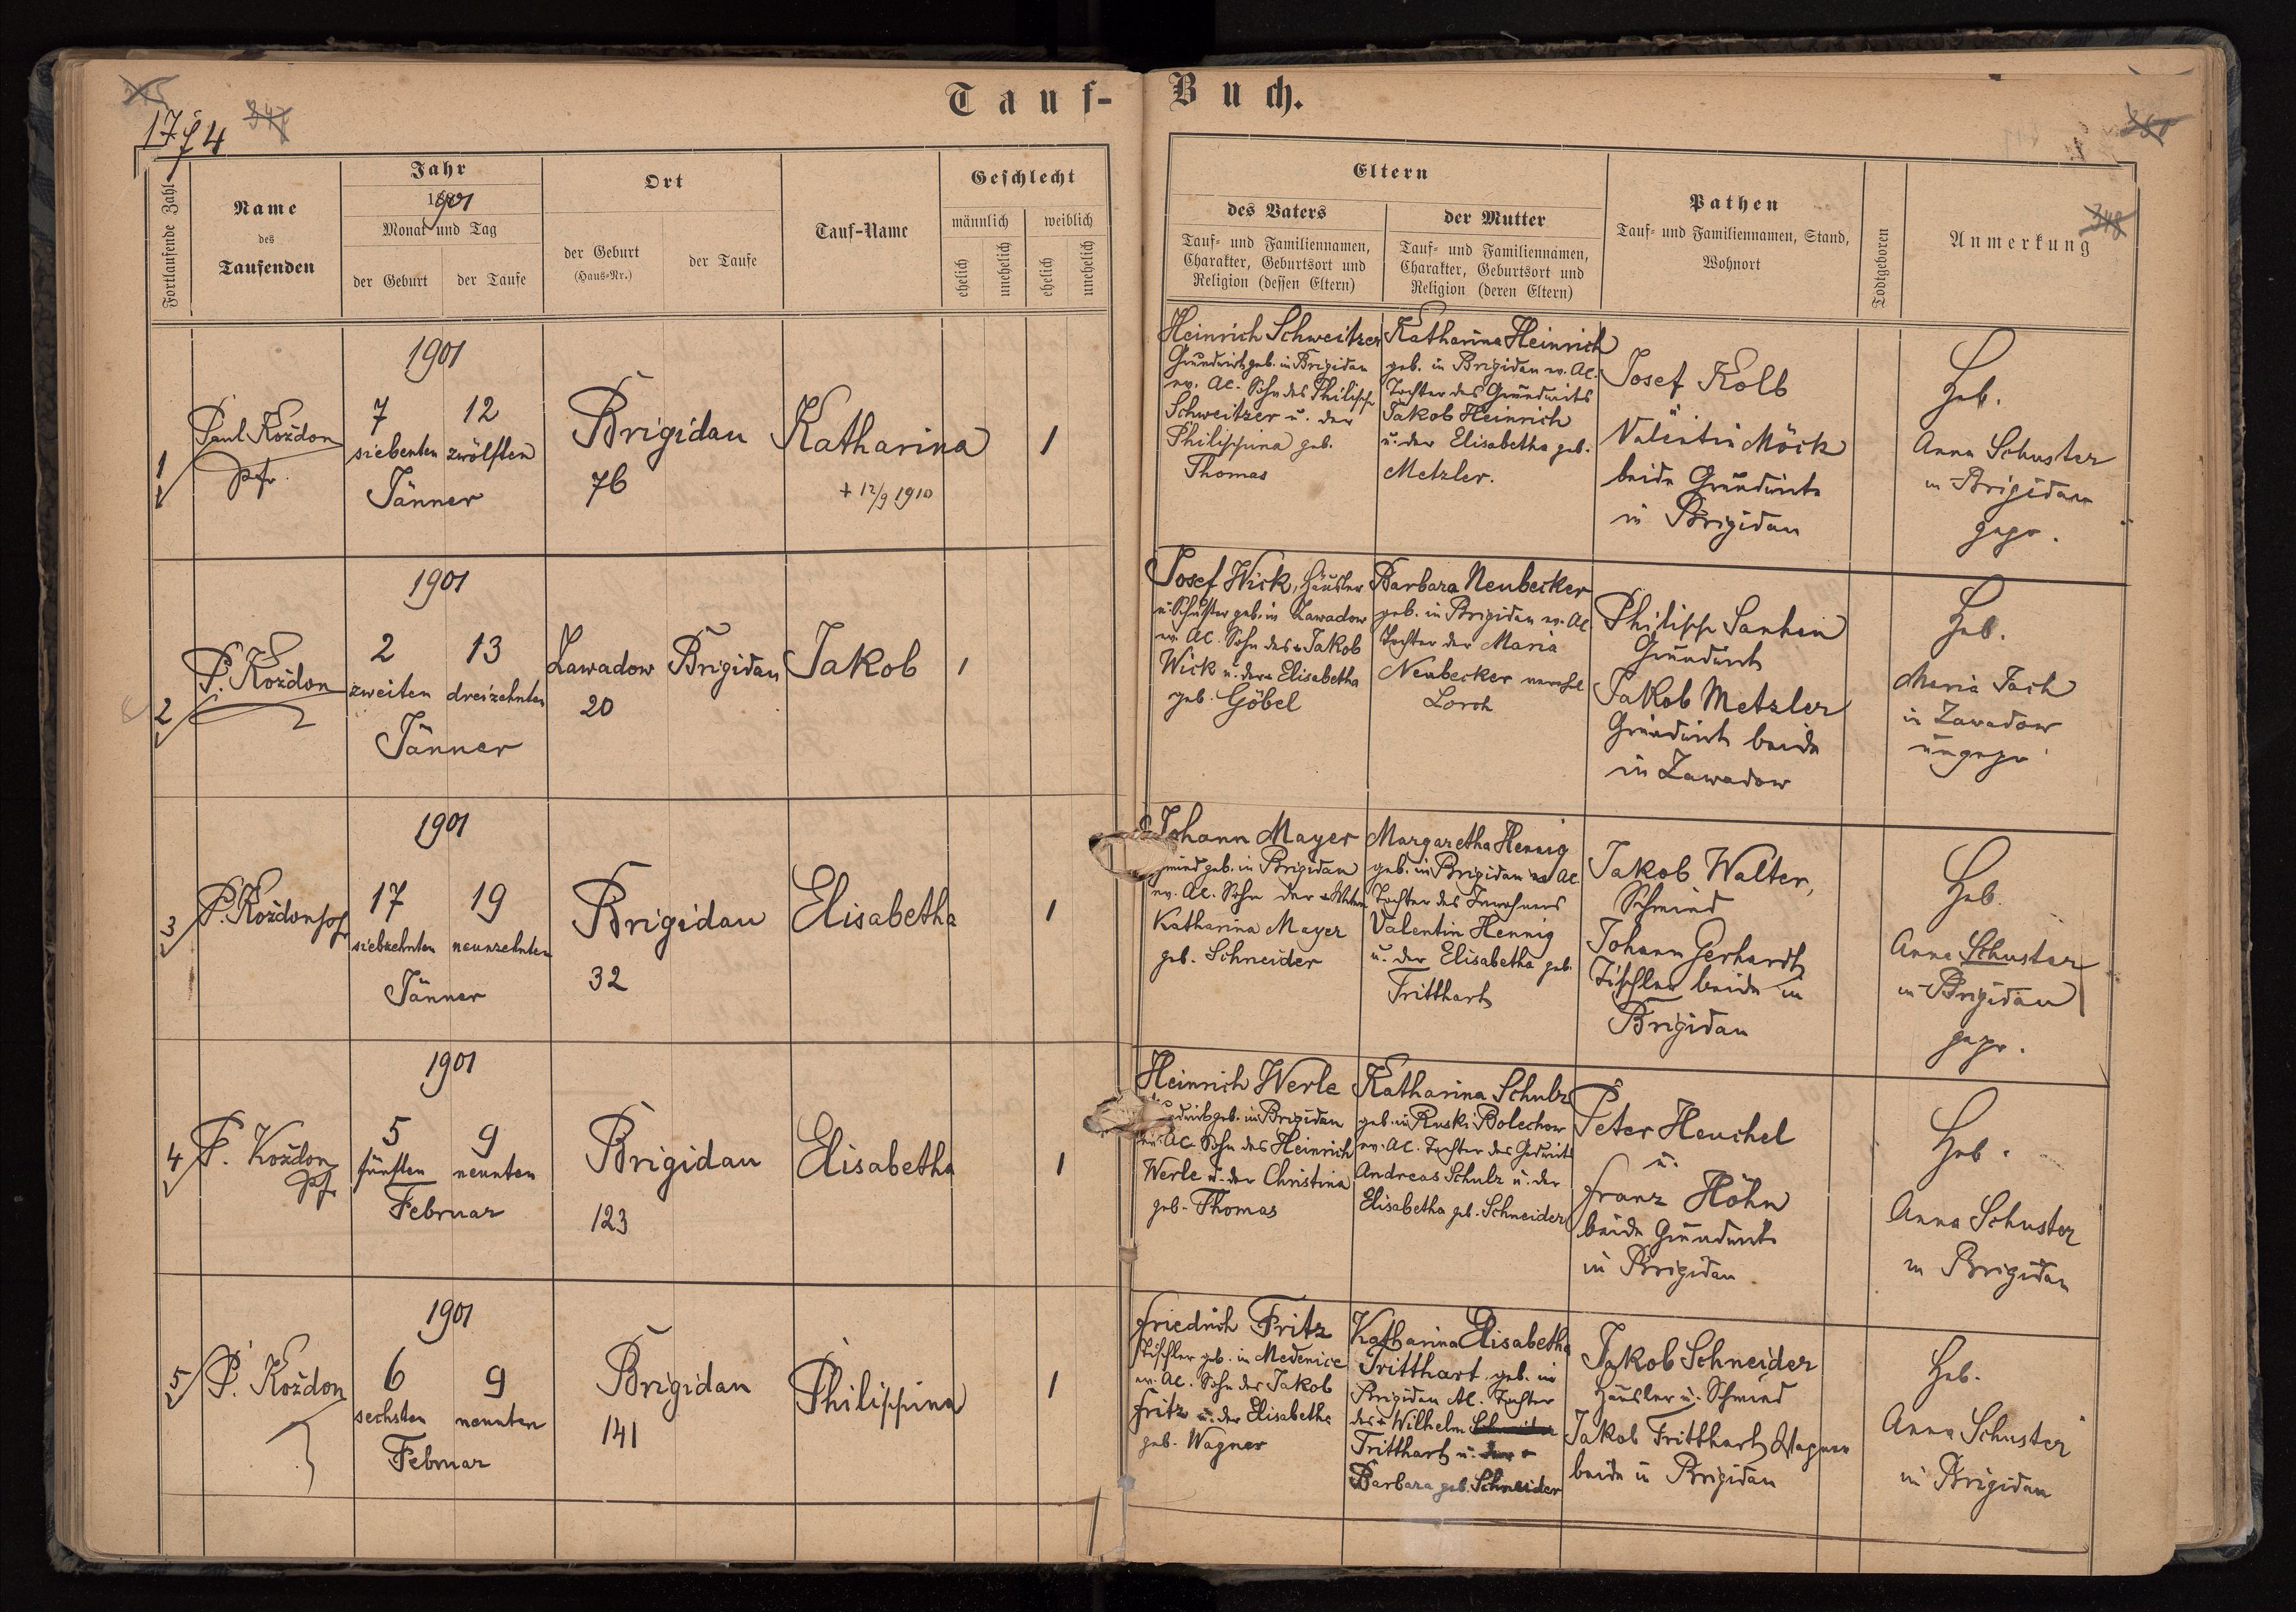 Tauf-
Buch.
1774
Fortlaufende Zahl
Name
des
Taufenden
Jahr
1901
Monat und Tag
der Geburt
der Taufe
Ort
der Geburt
(Haus-Nr.)
der Taufe
Tauf-Name
Geschlecht
männlich
weiblich
ehelich
unehelich
ehelich
unehelich
Eltern
des Vaters
Tauf- und Familiennamen,
Charakter, Geburtsort und
Religion (dessen Eltern)
der Mutter
Tauf- und Familiennamen,
Charakter, Geburtsort und
Religion (deren Eltern)
Pathen
Tauf- und Familiennamen, Stand,
Wohnort
Todtgeboren
Anmerkung
348
1
Paul Koždon
Pfr.
1901
7 12
siebenten zwölften
Jänner
Brigidau
76
Katharina
+ 12/9 1910
1
Heinrich Schweitzer
Grundwirt geb. in Brigidau
ev. AC. Sohn des Philipp
Schweitzer u. der
Philippina geb.
Thomas
Katharina Heinrich
geb. in Brigidau ev. AC.
Tochter des Grundwirts
Jakob Heinrich
u. der Elisabetha geb.
Metzler.
Josef Kolb
Valentin Möck
beide Grundwirte
in Brigidau
Heb.
Anna Schuster
in Brigidau
gepr.
2
P. Koždon
1901
2 13
zweiten dreizehnten
Jänner
Zawadow
20
Brigidau
Jakob
1
Josef Wick, Häusler
u. Schuster geb. in Zawadow
ev. AC. Sohn des Jakob
Wick u. der Elisabetha
geb. Göbel
Barbara Neubecker
geb. in Brigidau ev. AC
Tochter der Maria
Neubecker verehel
Lorch
Philipp
Grundwirt
Jakob Metzler
Grundwirt beide
in Zawadow
Heb.
Maria
in Zawadow
ungepr
3
P. Koždon Pfr
1901
17 19
siebzehnten neunzehnten
Jänner
Brigidau
32
Elisabetha
1
Johann Mayer
geb. in Brigidau
ev. AC. Sohn der
Katharina Mayer
geb. Schneider
Margaretha Hennig
geb. in Brigidau ev AC.
Tochter des Inwohners
Valentin Hennig
u. der Elisabetha geb.
Tritthart
Jakob Walter,
Schmied
Johann Gerhardt
Tischler beide in
Brigidau
Heb.
Anna Schuster
in Brigidau
gepr.
4
P. Koždon
Pfr
1901
5 9
fünften neunten
Februar
Brigidau
123
Elisabetha
1
Heinrich Werle
geb. in Brigidau
ev. AC. Sohn des Heinrich
Werle u. der Christina
geb. Thomas
Katharina Schulz
geb. in Ruski Bolechow
ev. AC. Tochter des Grdwirts
Andreas Schulz u. der
Elisabetha geb. Schneider
Peter Heuchel
u.
Franz Höhn
beide Grundwirte
in Brigidau
Heb.
Anna Schuster
in Brigidau
5
P. Koždon
1901
6 9
sechsten neunten
Februar
Brigidau
141
Philippina
1
Friedrich Fritz
Tischler geb. in Medenice
ev. AC. Sohn des Jakob
Fritz u. der Elisabetha
geb. Wagner
Katharina Elisabetha
Tritthart geb. in
Brigidau AC. Tochter
des Wilhelm
Tritthart u.
Barbara geb. Schneider
Jakob Schneider
Häusler u. Schmied
Jakob Tritthart Wagner
beide in Brigidau
Heb.
Anna Schuster
in Brigidau